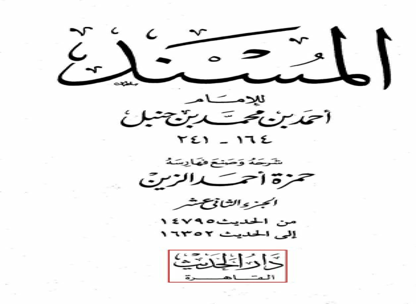 المسند
للإمام
أحمد بن محمد بن حنبل
١٦٤ - ٢٤١
شرحه وصنع فهارسه
حمزة أحمد الزين
الجزء الثاني عشر
من الحديث ١٤٧٩٥
إلى الحديث ١٦٣٥٢
دار الحديث
القاهرة